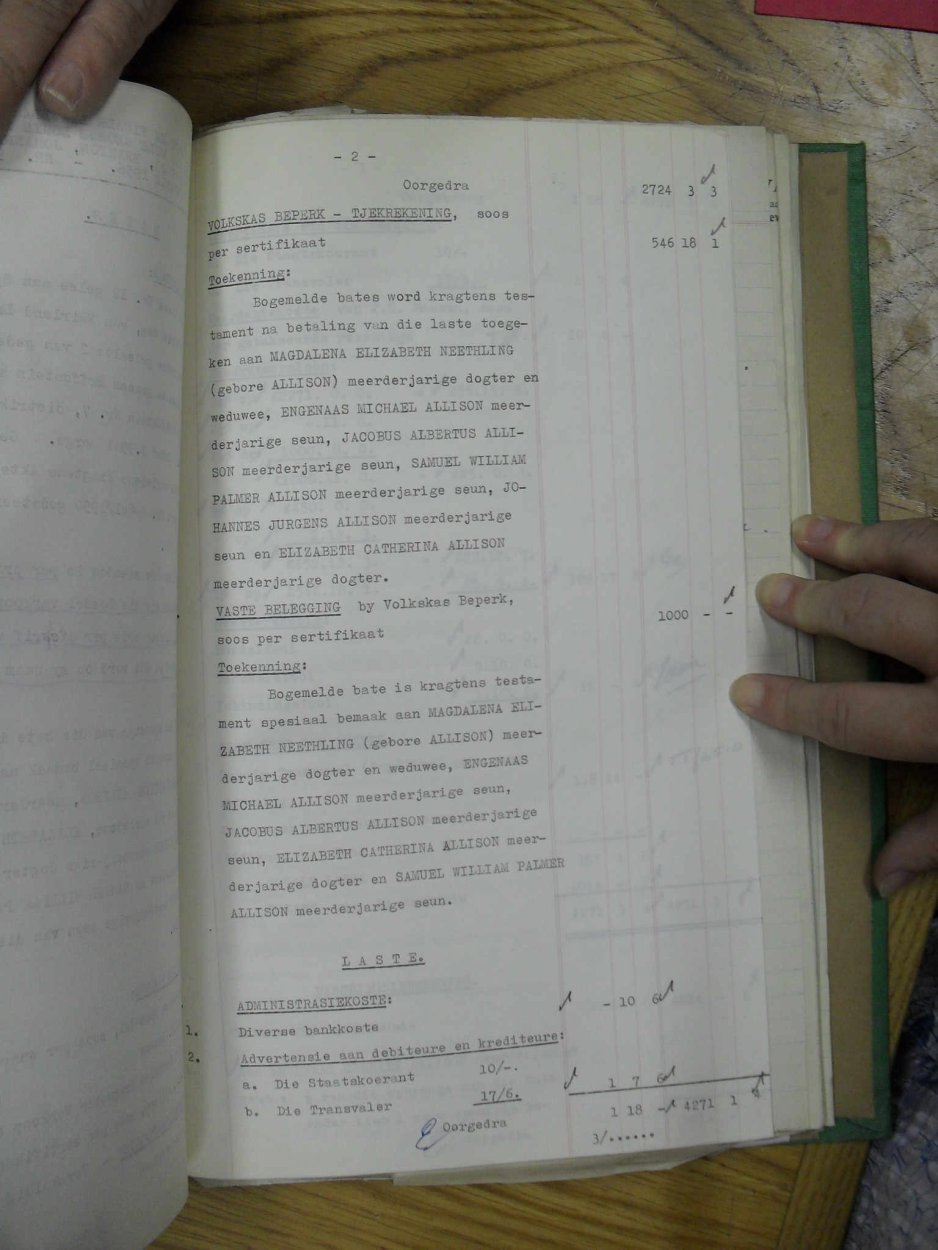 - 2 -
Oorgedra 2724 3 3
VOLKSKAS BEPERK - TJEKREKENING, soos
per sertifikaat 546 18 1
Toekenning:
Bogemelde bates word kragtens tes-
tament na betaling van die laste toege-
ken aan MAGDALENA ELIZABETH NEETHLING
(gebore ALLISON) meerderjarige dogter en
weduwee, ENGENAAS MICHAEL ALLISON meer-
derjarige seun, JACOBUS ALBERTUS ALLI-
SON meerderjarige seun, SAMUEL WILLIAM
PALMER ALLISON meerderjarige seun, JO-
HANNES JURGENS ALLISON meerderjarige
seun en ELIZABETH CATHERINA ALLISON
meerderjarige dogter.
VASTE BELEGGING by Volkskas Beperk,
soos per sertifikaat 1000 - -
Toekenning:
Bogemelde bate is kragtens testa-
ment spesiaal bemaak aan MAGDALENA ELI-
ZABETH NEETHLING (gebore ALLISON) meer-
derjarige dogter en weduwee, ENGENAAS
MICHAEL ALLISON meerderjarige seun,
JACOBUS ALBERTUS ALLISON meerderjarige
seun, ELIZABETH CATHERINA ALLISON meer-
derjarige dogter en SAMUEL WILLIAM PALMER
ALLISON meerderjarige seun.
L A S T E.
ADMINISTRASIEKOSTE:
1. Diverse bankkoste - 10 6
2. Advertensie aan debiteure en krediteure:
a. Die Staatskoerant 10/-.
b. Die Transvaler 17/6. 1 7 6
Oorgedra 1 18 - 4271 1 4
3/......